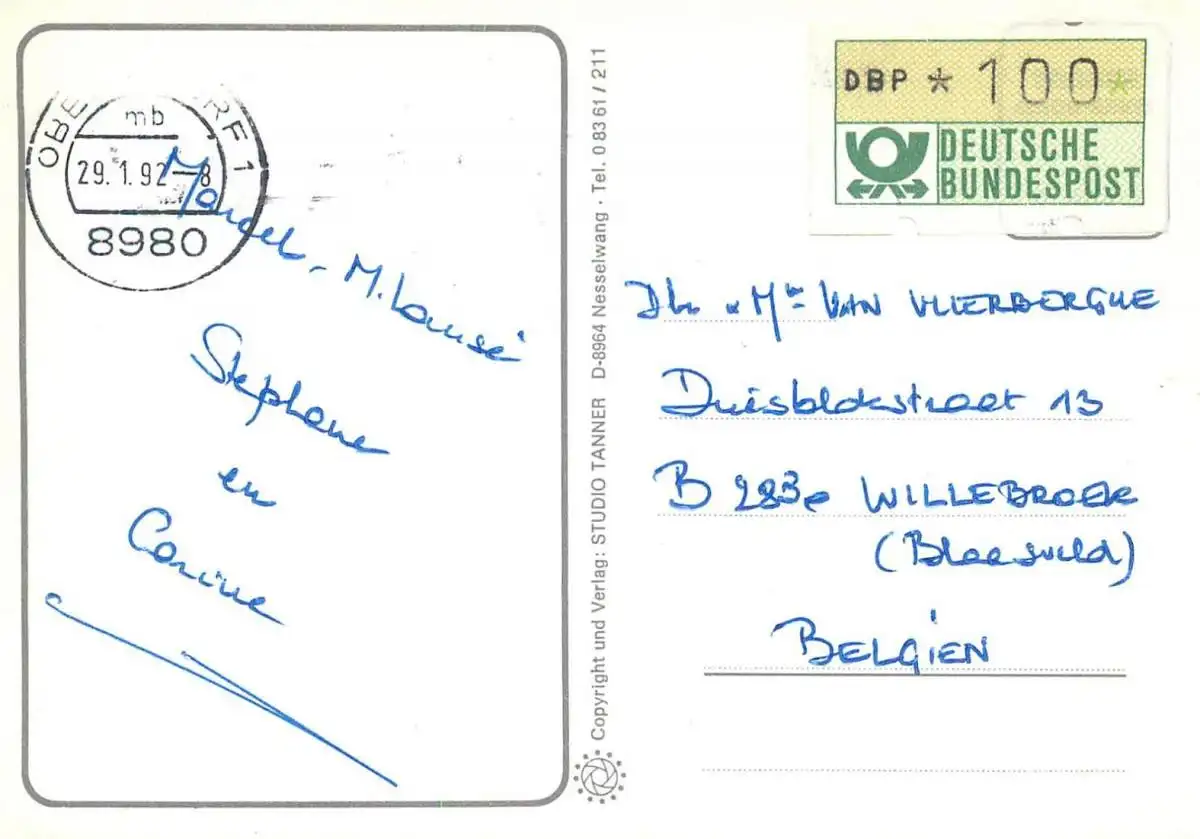 mb
29.1.92-8
8980
Marcel - M.Louise
Stephane
en
Corine
Copyright und Verlag: STUDIO TANNER D-8964 Nesselwang · Tel. 0 83 61 / 211
DBP * 100*
DEUTSCHE
BUNDESPOST
VAN VLIERBERGHE
Duisblokstraat 13
B 283e WILLEBROEK
(Blaasveld)
BELGIEN